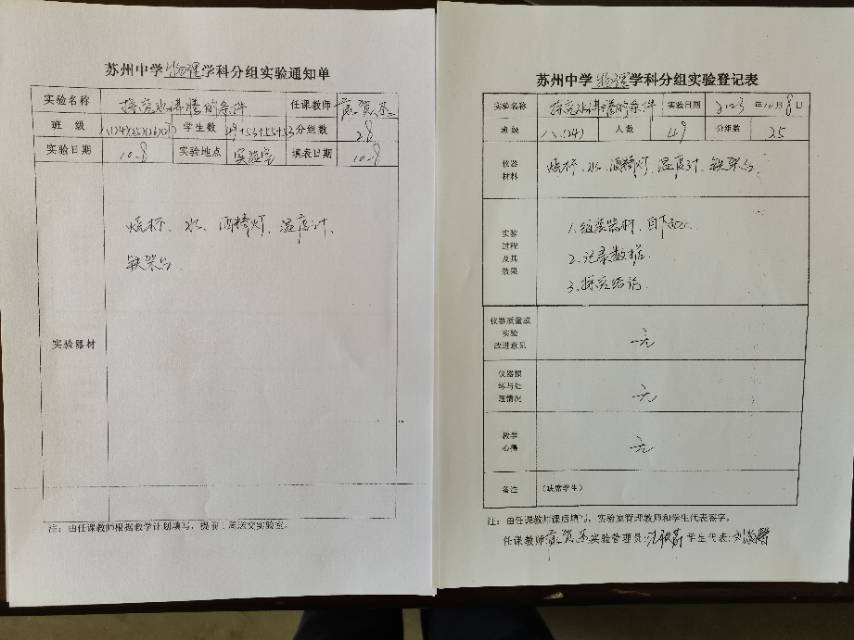 苏州中学物理学科分组实验通知单
实验名称 探究水沸腾的条件 任课教师
班 级 学生数 49+53+55+53 分组数 28
实验日期 10.8 实验地点 实验室 填表日期 10.8
实验器材
烧杯、水、酒精灯、温度计、
铁架台
注：由任课教师根据教学计划填写，提前一周送交实验室。
苏州中学物理学科分组实验登记表
实验名称 探究水沸腾的条件 实验日期 2023年10月8日
班 级 八(24) 人数 49 分组数 25
仪器
材料
烧杯、水、酒精灯、温度计、铁架台
实验
过程
及其
效果
1.组装器材，自下而上
2.记录数据
3.探究结论
仪器质量或
实验
改进意见
无
仪器损
坏与处
理情况
无
教学
心得
无
备注 (缺席学生)
注：由任课教师课后填写，实验室管理教师和学生代表签字。
任课教师: 实验管理员: 学生代表: